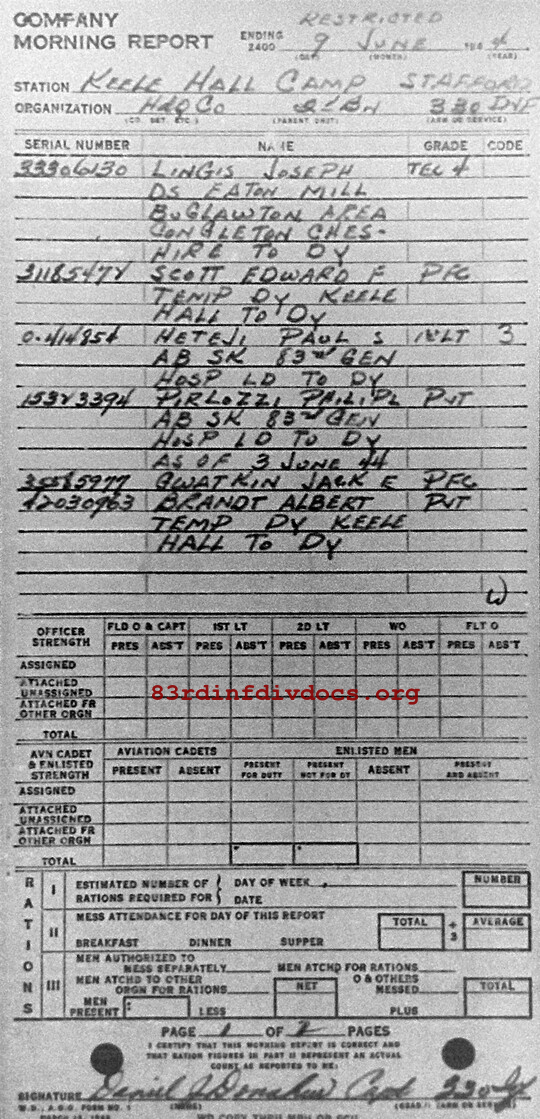 RESTRICTED
COMPANY
MORNING REPORT ENDING 2400 9 JUNE 1944
(DAY) (MONTH) (YEAR)
STATION KEELE HALL CAMP STAFFORD
ORGANIZATION HdQ Co 2d BN 330 INF
(CO. DET. ETC.) (PARENT UNIT) (ARM OR SERVICE)
SERIAL NUMBER NAME GRADE CODE
33306130 LINGIS JOSEPH TEC 4
DS EATON MILL
BUGLAWTON AREA
CONGLETON CHES-
HIRE TO DY
SCOTT EDWARD F PFC
TEMP DY KEELE
HALL TO DY
HETEJI PAUL S 1st LT 3
AB SK 83rd GEN
HOSP LD TO DY
15323394 PIRLOZZI PHILIP L PVT
AB SK 83rd GEN
HOSP LD TO DY
AS OF 3 JUNE 44
35585977 GWATKIN JACK E PFC
42030963 BRANDT ALBERT PVT
TEMP DY KEELE
HALL TO DY
W
OFFICER STRENGTH FLD O & CAPT 1ST LT 2D LT WO FLT O
PRES ABS'T PRES ABS'T PRES ABS'T PRES ABS'T PRES ABS'T
ASSIGNED
ATTACHED UNASSIGNED
ATTACHED FR OTHER ORGN
TOTAL
83rdinfdivdocs.org
AVN CADET & ENLISTED STRENGTH AVIATION CADETS ENLISTED MEN
PRESENT ABSENT PRESENT FOR DUTY PRESENT NOT FOR DY ABSENT PRESENT AND ABSENT
ASSIGNED
ATTACHED UNASSIGNED
ATTACHED FR OTHER ORGN
TOTAL
RATIONS
I ESTIMATED NUMBER OF RATIONS REQUIRED FOR { DAY OF WEEK DATE NUMBER
II MESS ATTENDANCE FOR DAY OF THIS REPORT TOTAL ÷ 3 AVERAGE
BREAKFAST DINNER SUPPER
III MEN AUTHORIZED TO MESS SEPARATELY MEN ATCHD FOR RATIONS
MEN ATCHD TO OTHER ORGN FOR RATIONS NET O & OTHERS MESSED TOTAL
MEN PRESENT LESS PLUS
PAGE 1 OF 2 PAGES
I CERTIFY THAT THIS MORNING REPORT IS CORRECT AND
THAT RATION FIGURES IN PART II REPRESENT AN ACTUAL
COUNT AS REPORTED TO ME:
SIGNATURE Daniel J Donahue Capt 330 Inf
W.D., A.G.O. FORM NO. 1 (NAME) (GRADE) (ARM OR SERVICE)